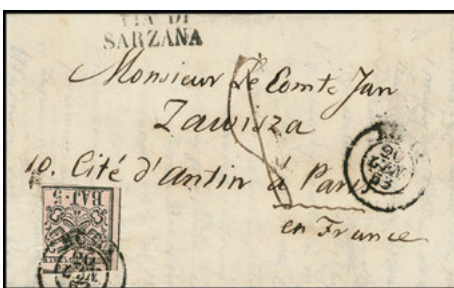 VIA DI
SARZANA
Monsieur Le Comte Jan
Zawisza
10. Cité d'Antin à Paris
en France
BAJ 5